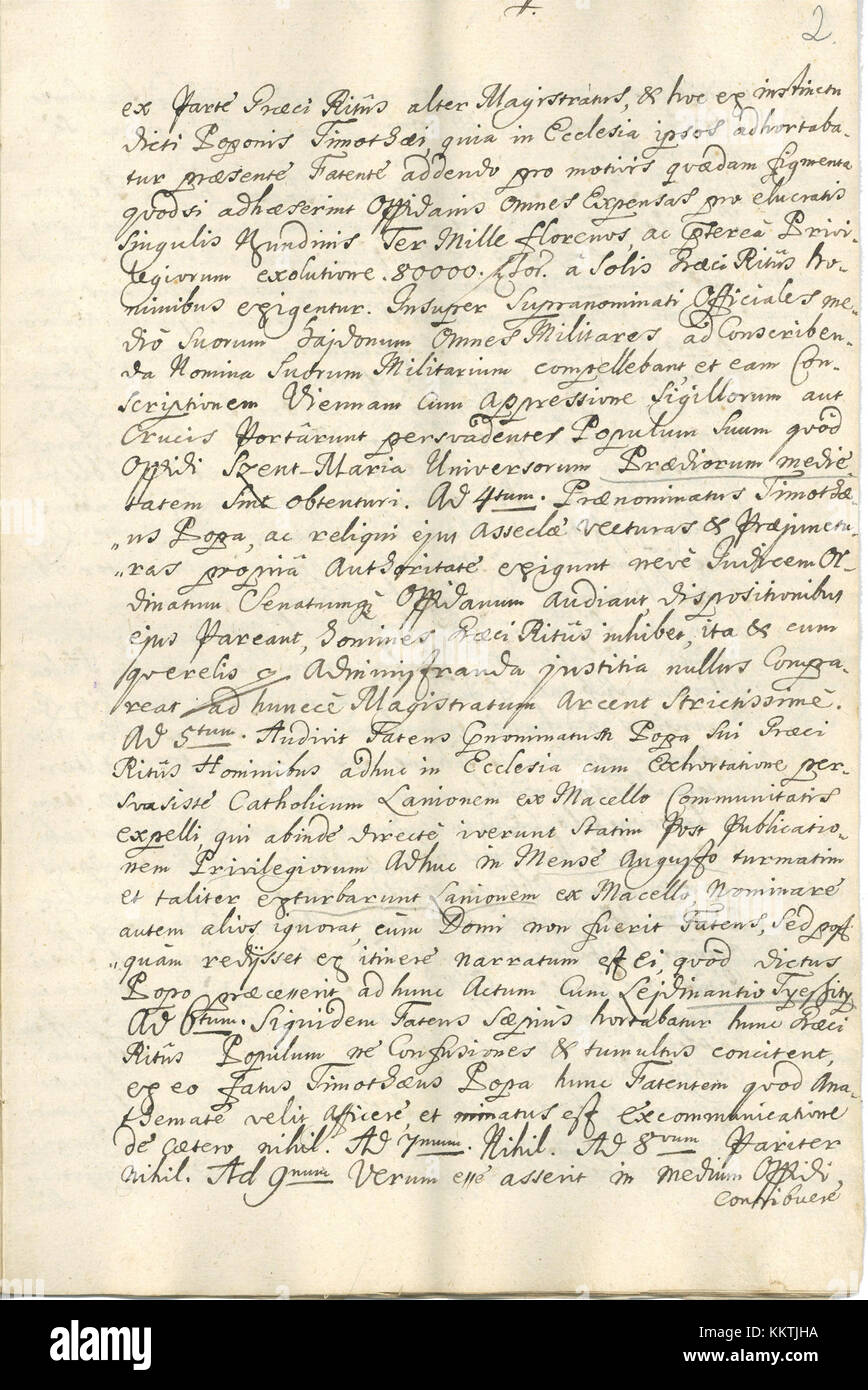 2.
ex Parte Græci Ritûs alter Magistratus, & hoc ex instinctu
dicti Poponis Timothæi, quia in Ecclesia ipsos adhortaba-
tur præsente Fatente addendo pro motivis quædam figmenta
quodsi adhæserint Oppidanis Omnes Expensas pro elucratis
Singulis Nundinis Ter Mille florenos, ac pterea Privi-
legiorum exolutione 80000 flor. à Solis Græci Ritûs ho-
minibus exigentur. Insuper Supranominati Officiales me-
diô Suorum hajdonum Omnes Militares ad Conscriben-
da Nomina Suorum Militarium compellebant, et eam Con-
scriptionem Viennam Cum appressione Sigillorum aut
Crucis Portârunt persvadentes Populum Suum quôd
Oppidi Szent-Maria Universorum Prædiorum medie-
tatem sint obtenturi. Ad 4tum. Prænominatus Timothæ-
us Popa, ac reliqui ejus Asseclæ vecturas & Præjunctu-
ras propriâ Authoritate exigunt nevè Judicem Or-
dinatum Senatumque Oppidanum audiant, dispositionibus
ejus Pareant, homines Græci Ritûs inhibet, ita & cum
querelis Administranda justitia nullus Compa-
reat ad huncce Magistratum arcent Strictissimè.
Ad 5tum. Audivit Fatens Popa Sui Græci
Ritûs Hominibus adhuc in Ecclesia cum Exhortatione per-
svasisse Catholicum Lanionem ex Macello Communitatis
expelli, qui abinde directè iverunt Statim Post Publicatio-
nem Privilegiorum Adhuc in Mense Augusto turmatim
et taliter exturbarunt Lanionem ex Macello, Nominare
autem alios ignorat, cùm Domi non fuerit Fatens, Sed post
quàm redijsset ex itinere narratum est ei, quôd dictus
Popo præcesserit ad hunc Actum Cum
Ad 6tum. Siquidem Fatens Sæpius hortabatur hunc Græci
Ritûs Populum ne Confusiones & tumultus concitent,
ex eo fatus Timothæus Popa hunc Fatentem quod Ana-
themate velit afficere, et minatus est excommunicatione
de cætero nihil. Ad 7mum. Nihil. Ad 8vum Pariter
Nihil. Ad 9num Verum esse asserit in medium Oppidi
contribuere
alamy
Image ID: KKTJHA
www.alamy.com